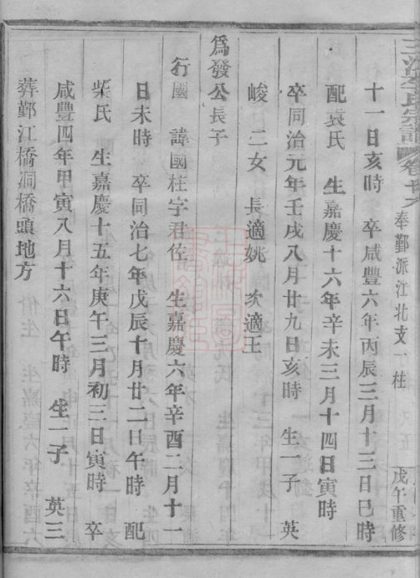 三江李氏宗譜 卷廿八 奉鄞派江北支一柱 戊午重修
十一日亥時 卒咸豐六年丙辰三月十三日巳時
配袁氏 生嘉慶十六年辛未三月十四日寅時
卒同治元年壬戌八月廿九日亥時 生一子 英
峻 二女 長適姚 次適王
為發公長子
行國 諱國柱字君佐 生嘉慶六年辛酉二月十一
日未時 卒同治七年戊辰十月廿二日午時 配
柴氏 生嘉慶十五年庚午三月初三日寅時 卒
咸豐四年甲寅八月十六日午時 生一子 英三
葬鄞江橋洞橋頭地方